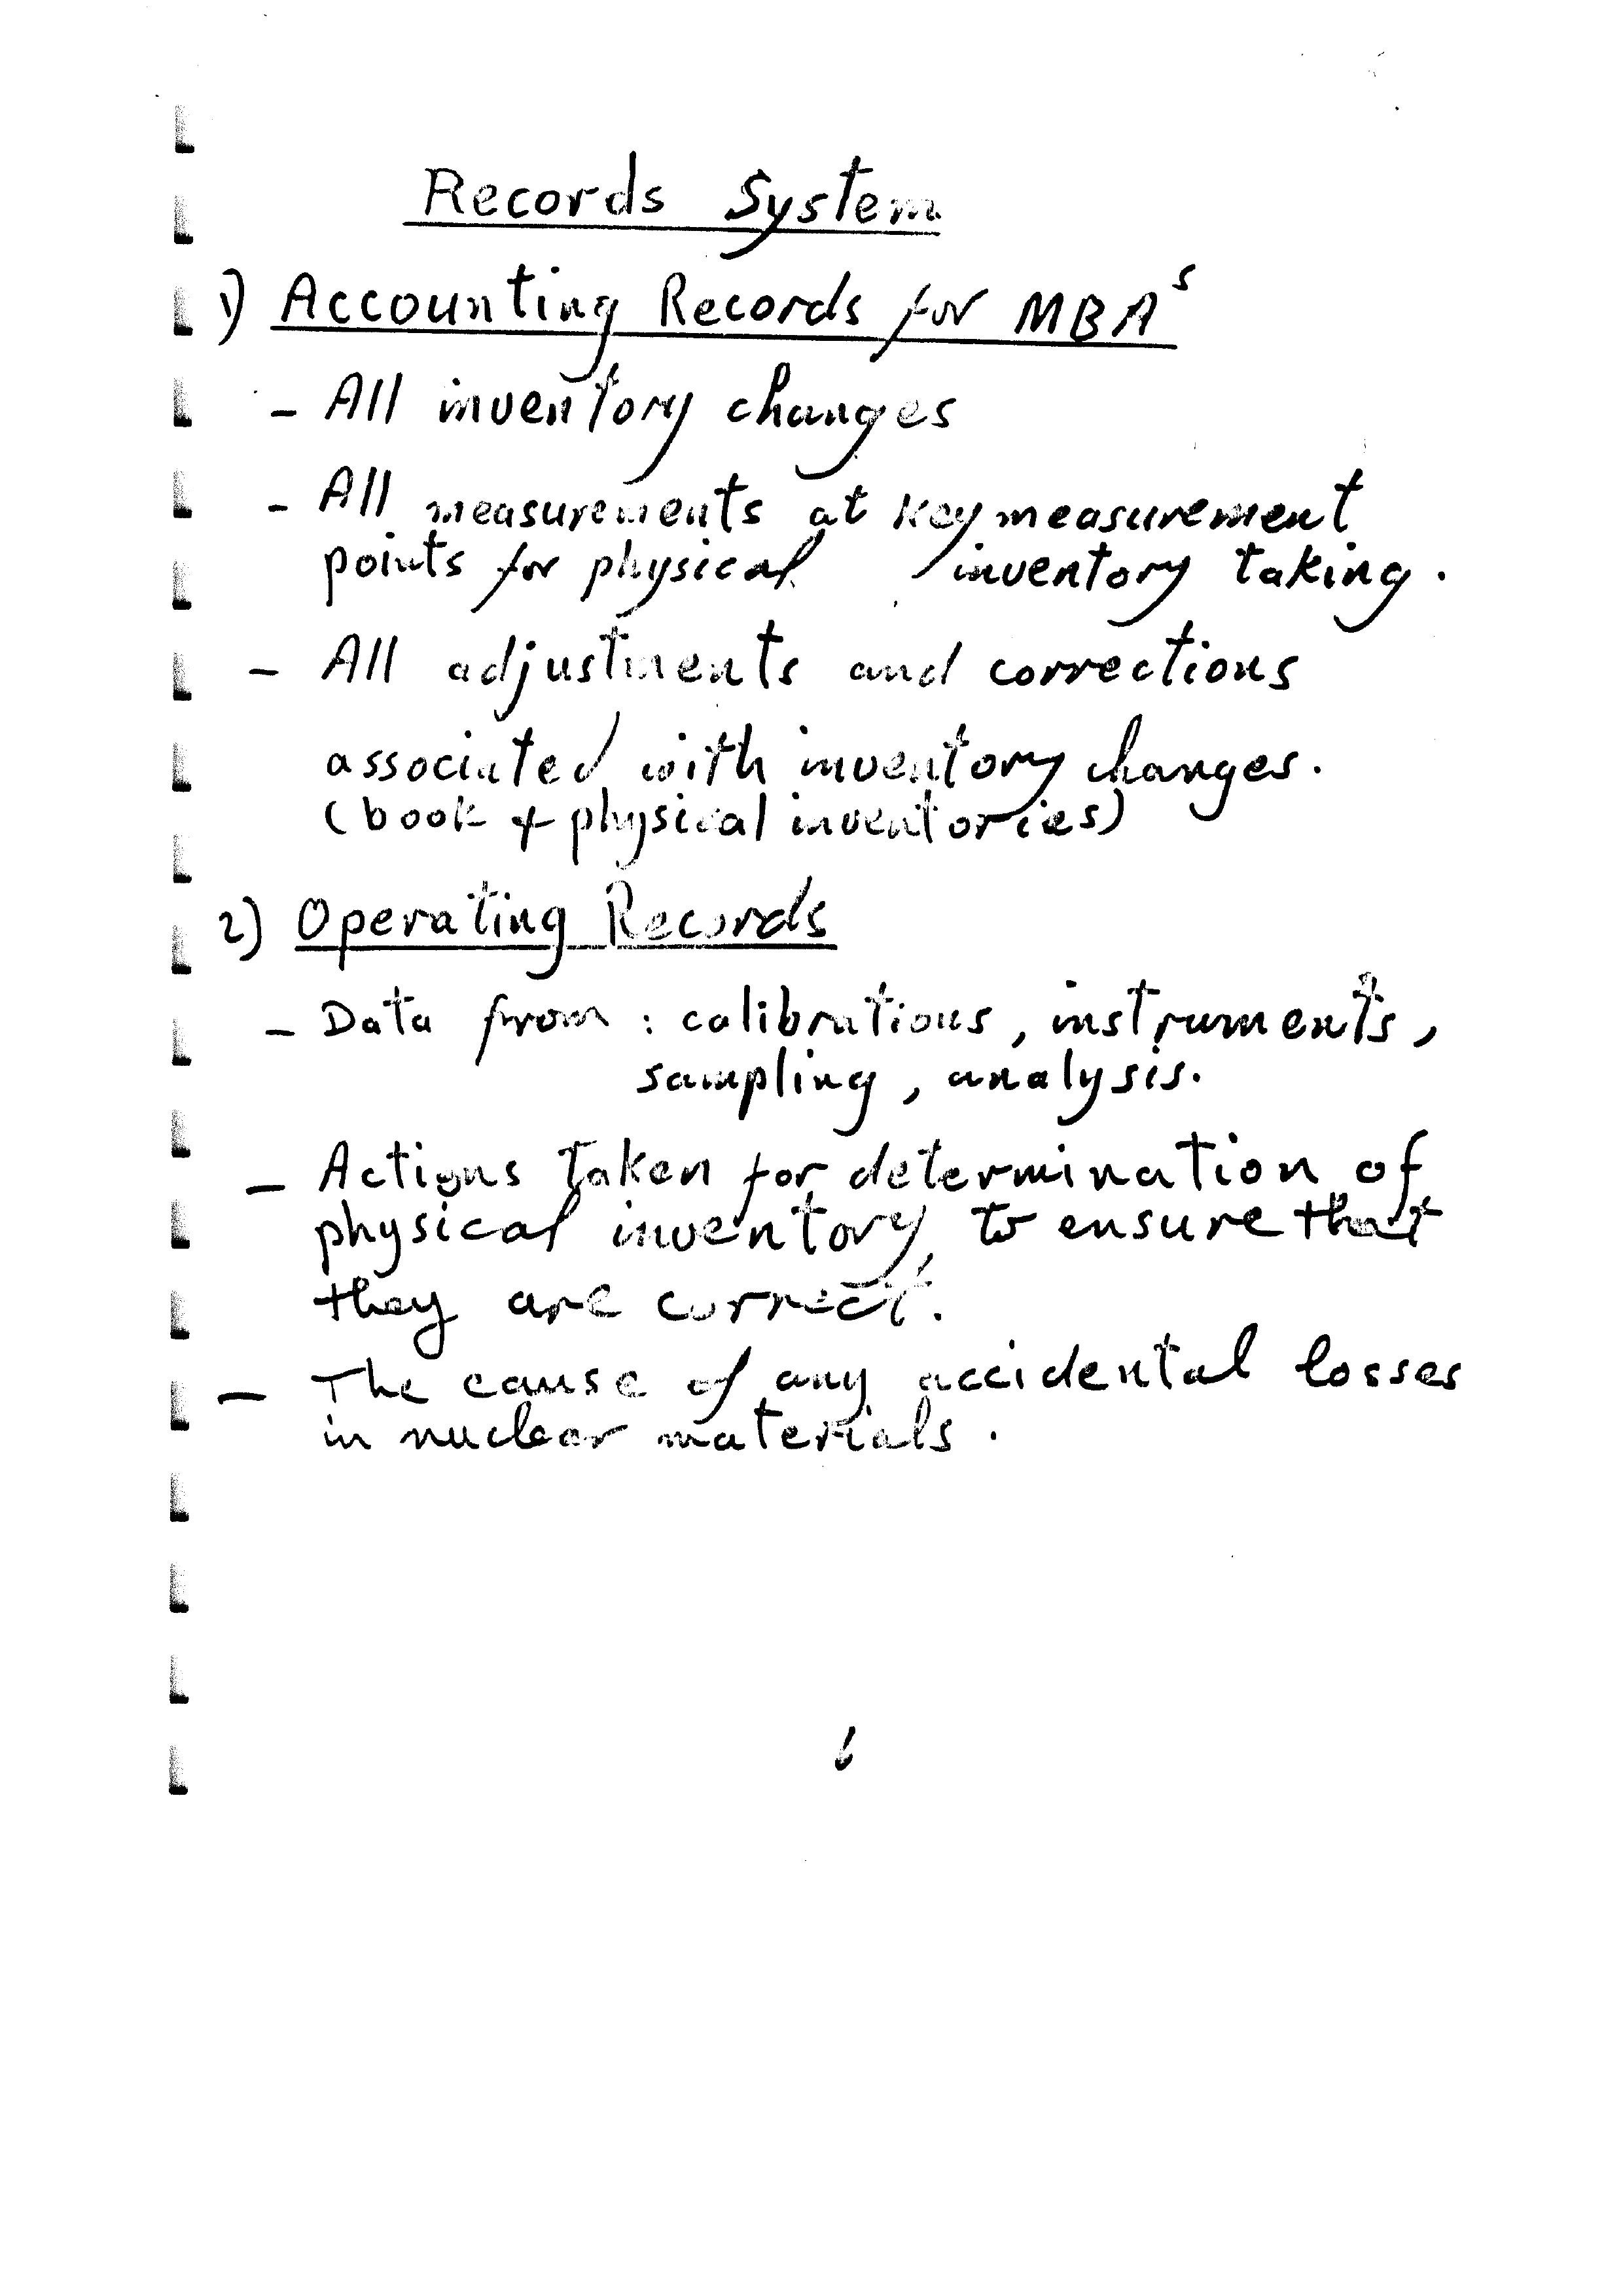 Records System
1) Accounting Records for MBAs
- All inventory changes
- All measurements at key measurement
points for physical inventory taking.
- All adjustments and corrections
associated with inventory changes.
(book + physical inventories)
2) Operating Records
- Data from : calibrations, instruments,
sampling, analysis.
- Actions taken for determination of
physical inventory, to ensure that
they are correct.
- The cause of any accidental losses
in nuclear materials.
6